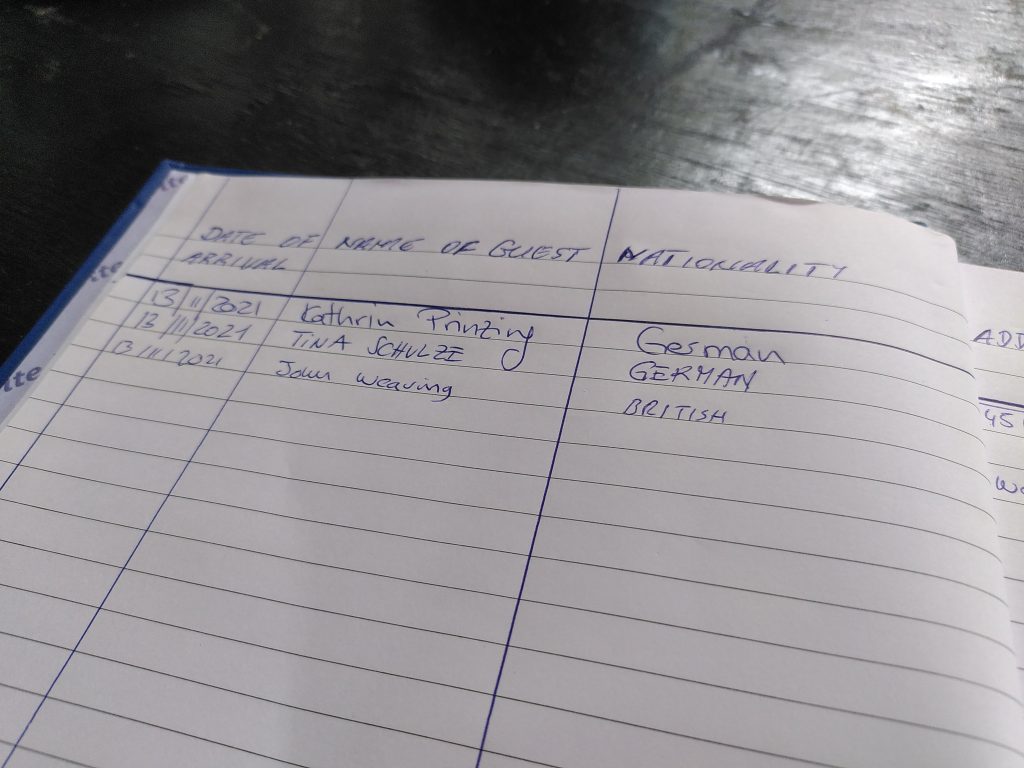 DATE OF NAME OF GUEST NATIONALITY
ARRIVAL
ADD
13/11/2021 Kathrin Prinzing German
13/11/2021 TINA SCHULZE GERMAN
13/11/2021 John Weaving BRITISH
45